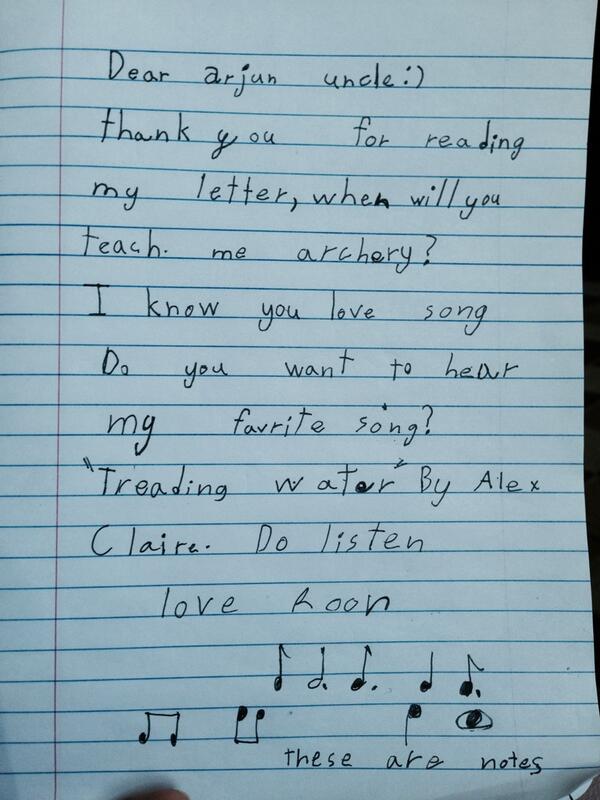 Dear arjun uncle:)
thank you for reading
my letter, when will you
teach. me archery?
I know you love song
Do you want to hear
my favrite song?
"Treading water" By Alex
Claire. Do listen
love Roon
these are notes